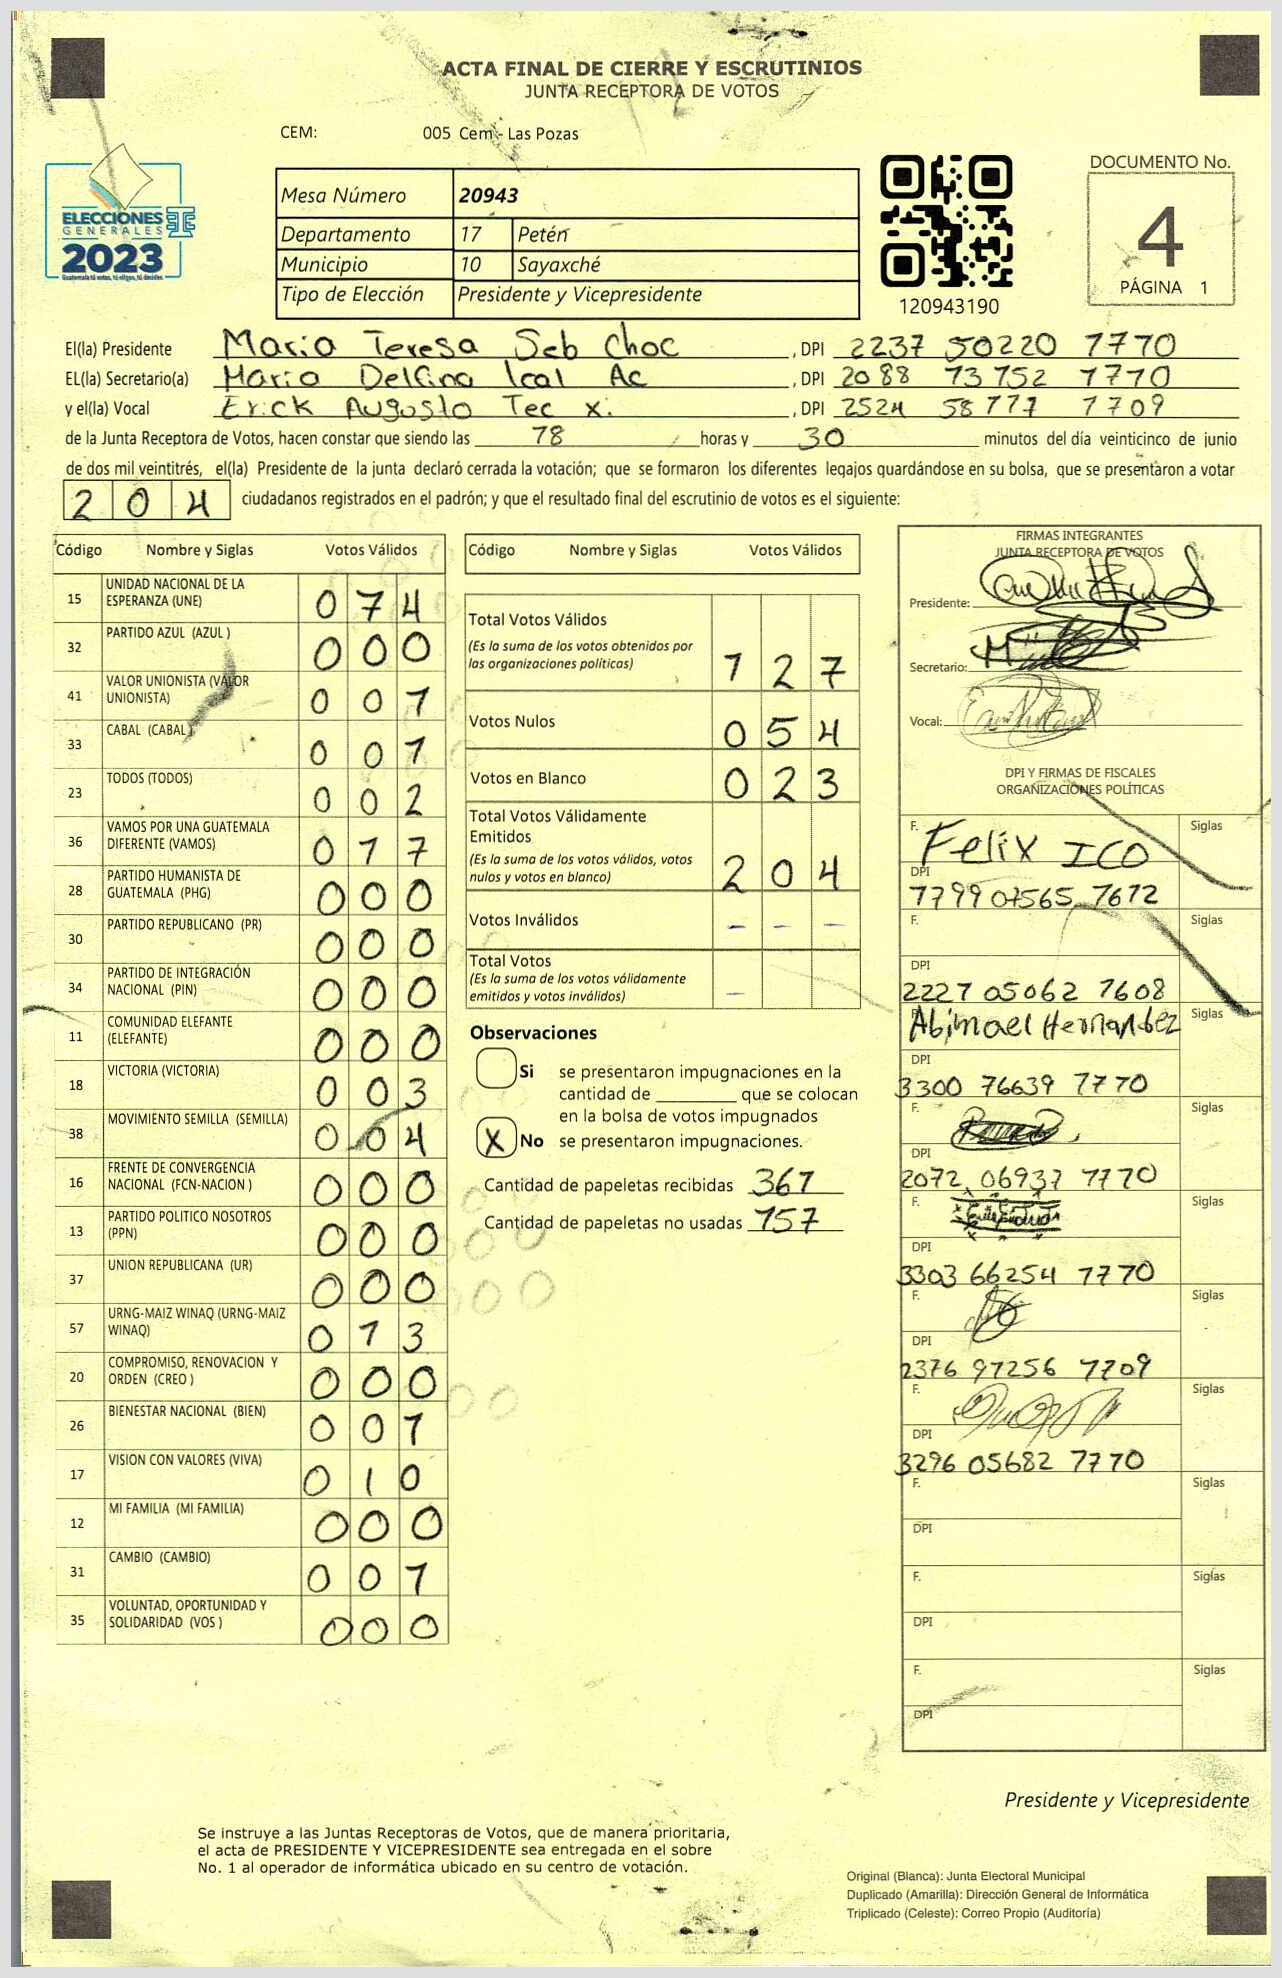 ACTA FINAL DE CIERRE Y ESCRUTINIOS
JUNTA RECEPTORA DE VOTOS
CEM: 005 Cem - Las Pozas
ELECCIONES
GENERALES
2023
Guatemala tú votas, tú eliges, tú decides
Mesa Número 20943
Departamento 17 Petén
Municipio 10 Sayaxché
Tipo de Elección Presidente y Vicepresidente
120943190
DOCUMENTO No.
4
PÁGINA 1
El(la) Presidente Maria Teresa Seb Choc , DPI 2237 50220 1770
EL(la) Secretario(a) Maria Delfina Ical Ac , DPI 2088 73752 1770
y el(la) Vocal Erick Augusto Tec x. , DPI 2524 58777 1709
de la Junta Receptora de Votos, hacen constar que siendo las 18 horas y 30 minutos del día veinticinco de junio
de dos mil veintitrés, el(la) Presidente de la junta declaró cerrada la votación; que se formaron los diferentes legajos guardándose en su bolsa, que se presentaron a votar
204 ciudadanos registrados en el padrón; y que el resultado final del escrutinio de votos es el siguiente:
Código Nombre y Siglas Votos Válidos
15 UNIDAD NACIONAL DE LA
ESPERANZA (UNE) 074
32 PARTIDO AZUL (AZUL ) 000
41 VALOR UNIONISTA (VALOR
UNIONISTA) 001
33 CABAL (CABAL ) 001
23 TODOS (TODOS) 002
36 VAMOS POR UNA GUATEMALA
DIFERENTE (VAMOS) 017
28 PARTIDO HUMANISTA DE
GUATEMALA (PHG) 000
30 PARTIDO REPUBLICANO (PR) 000
34 PARTIDO DE INTEGRACIÓN
NACIONAL (PIN) 000
11 COMUNIDAD ELEFANTE
(ELEFANTE) 000
18 VICTORIA (VICTORIA) 003
38 MOVIMIENTO SEMILLA (SEMILLA) 004
16 FRENTE DE CONVERGENCIA
NACIONAL (FCN-NACION ) 000
13 PARTIDO POLITICO NOSOTROS
(PPN) 000
37 UNION REPUBLICANA (UR) 000
57 URNG-MAIZ WINAQ (URNG-MAIZ
WINAQ) 013
20 COMPROMISO, RENOVACION Y
ORDEN (CREO ) 000
26 BIENESTAR NACIONAL (BIEN) 001
17 VISION CON VALORES (VIVA) 010
12 MI FAMILIA (MI FAMILIA) 000
31 CAMBIO (CAMBIO) 001
35 VOLUNTAD, OPORTUNIDAD Y
SOLIDARIDAD (VOS ) 000
Código Nombre y Siglas Votos Válidos
Total Votos Válidos
(Es la suma de los votos obtenidos por
las organizaciones políticas) 127
Votos Nulos 054
Votos en Blanco 023
Total Votos Válidamente
Emitidos
(Es la suma de los votos válidos, votos
nulos y votos en blanco) 204
Votos Inválidos – – –
Total Votos
(Es la suma de los votos válidamente
emitidos y votos inválidos) –
Observaciones
Si se presentaron impugnaciones en la
cantidad de ________ que se colocan
en la bolsa de votos impugnados
X No se presentaron impugnaciones.
Cantidad de papeletas recibidas 361
Cantidad de papeletas no usadas 157
FIRMAS INTEGRANTES
JUNTA RECEPTORA DE VOTOS
Presidente:
Secretario:
Vocal:
DPI Y FIRMAS DE FISCALES
ORGANIZACIONES POLÍTICAS
F. Felix ICO Siglas
DPI
1799 07565 1612
F. Siglas
DPI
2227 05062 1608
F. Abimael Hernandez Siglas
DPI
3300 76639 1770
F. Siglas
DPI
2072 06937 1770
F. Siglas
DPI
3303 66254 1770
F. Siglas
DPI
2376 97256 1709
F. Siglas
DPI
3296 05682 1770
F. Siglas
DPI
F. Siglas
DPI
F. Siglas
DPI
Presidente y Vicepresidente
Se instruye a las Juntas Receptoras de Votos, que de manera prioritaria,
el acta de PRESIDENTE Y VICEPRESIDENTE sea entregada en el sobre
No. 1 al operador de informática ubicado en su centro de votación.
Original (Blanca): Junta Electoral Municipal
Duplicado (Amarilla): Dirección General de Informática
Triplicado (Celeste): Correo Propio (Auditoría)